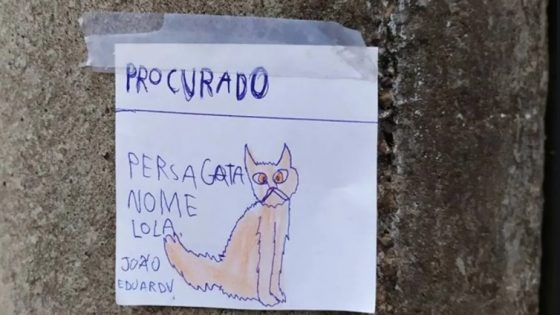 PROCURADO
PERSA GATA
NOME
LOLA
JOÃO
EDUARDU